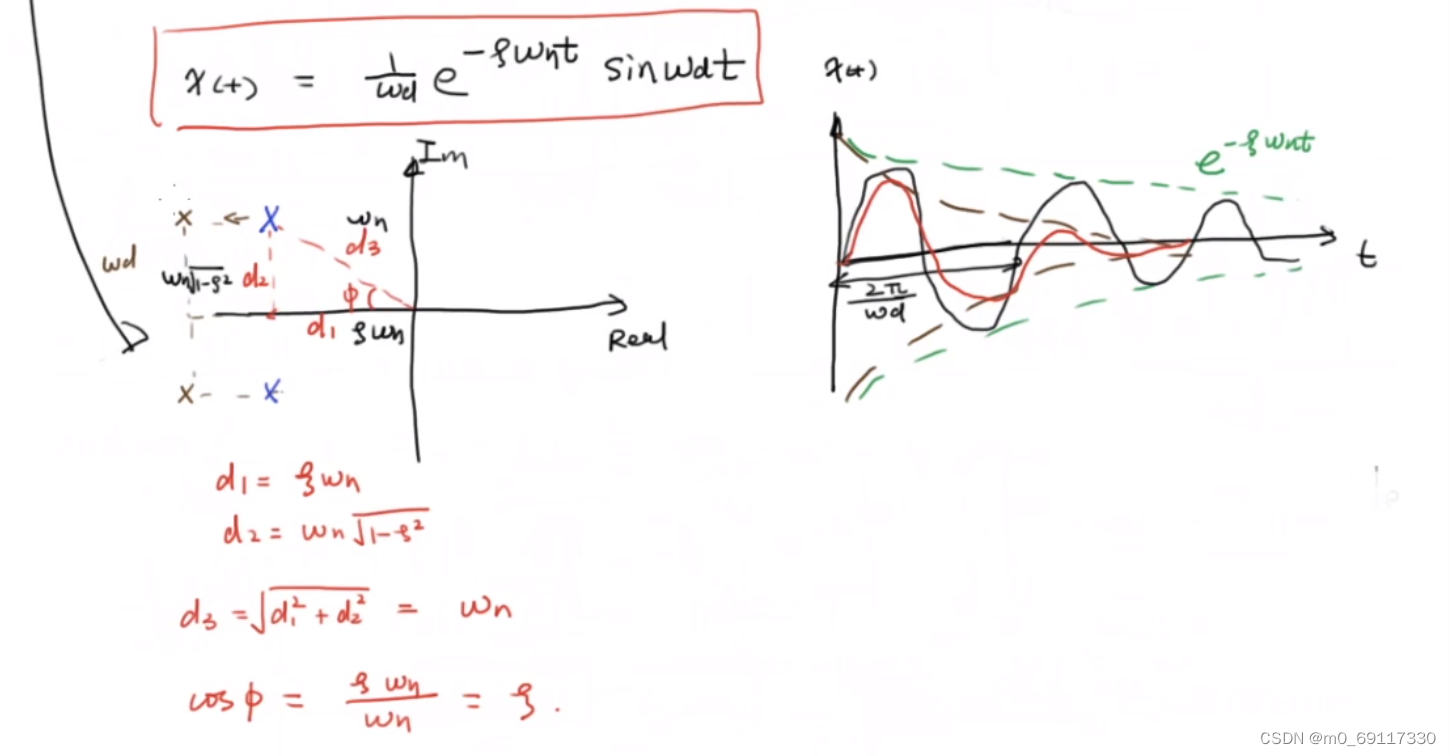 x(t) = 1/ωd e^-ξωnt sinωdt
x(t)
Im
e^-ξωnt
ωn
d3
ωd
ωn√1-ξ²
d2
φ
t
2π/ωd
d1
ξωn
Real
d1 = ξωn
d2 = ωn√1-ξ²
d3 = √d1² + d2² = ωn
cosφ = ξωn/ωn = ξ.
CSDN @m0_69117330